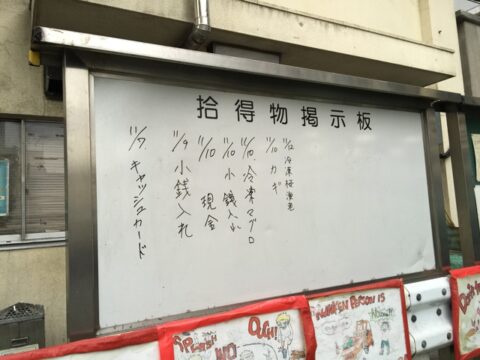 拾得物掲示板
11/12 冷凍桜海老
11/10 カギ
11/10 冷凍マグロ
11/10 小銭入れ
11/10 現金
11/9 小銭入れ
11/7 キャッシュカード
SPEECH
NO
OUCH!
DRUNKEN PERSON IS
Don't